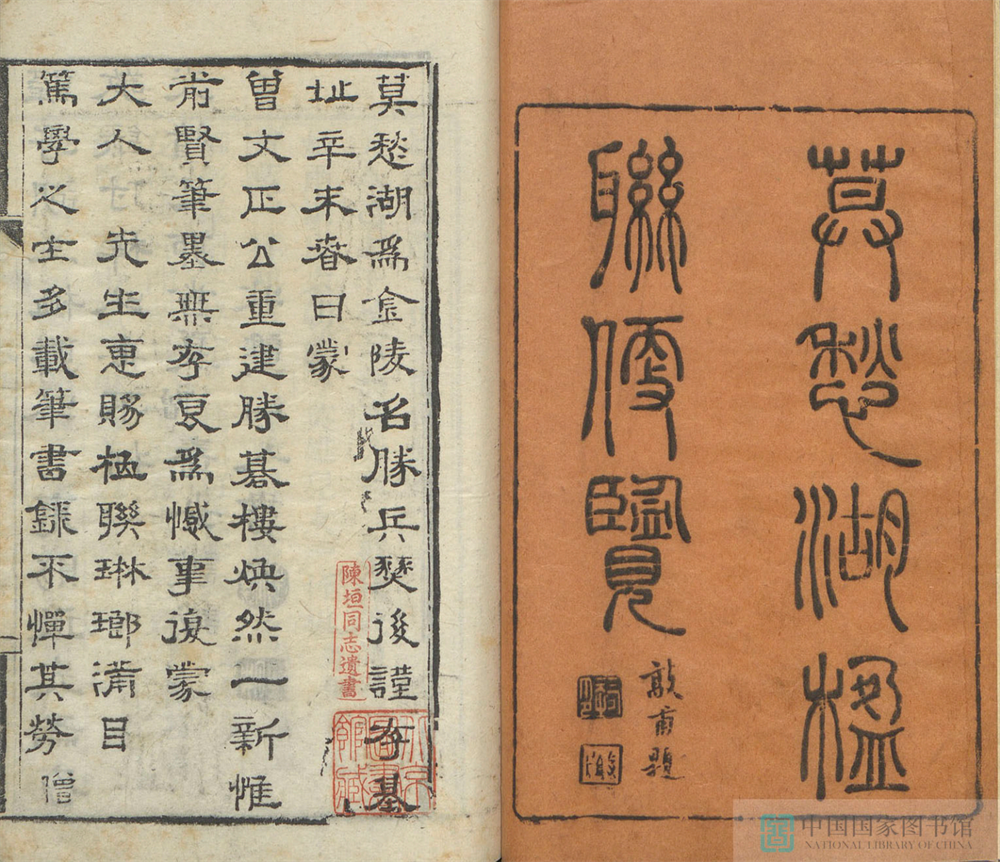 莫愁湖楹
聯便覽
敦甫題
莫愁湖爲金陵名勝兵燹後謹存基
址辛未春日蒙
曾文正公重建勝碁樓煥然一新惟
前賢筆墨無存良爲憾事復蒙
大人先生惠賜楹聯琳瑯滿目
篤學之士多載筆書錄不憚其勞僧
陳垣同志遺書
北京圖書館藏
中国国家图书馆
NATIONAL LIBRARY OF CHINA